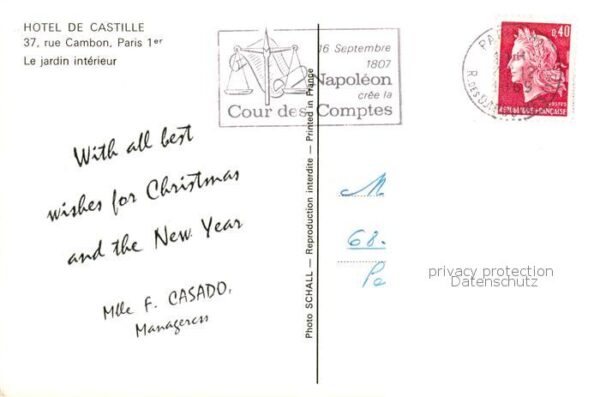 HOTEL DE CASTILLE
37, rue Cambon, Paris 1er
Le jardin intérieur
16 Septembre
1807
Napoléon
crée la
Cour des Comptes
0,40
REPUBLIQUE FRANÇAISE
With all best
wishes for Christmas
and the New Year
Mlle F. CASADO,
Manageress
Photo SCHALL — Reproduction interdite — Printed in France
M
68.
Pa
privacy protection
Datenschutz